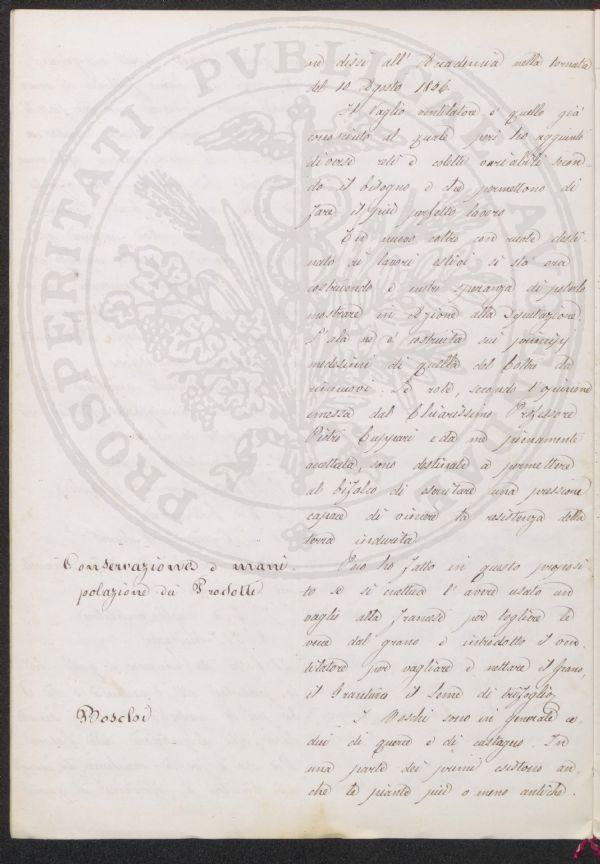 ne dissi all' Accademia nella tornata
del 10 Agosto 1856.
Il vaglio ventilatore è quello già
conosciuto al quale però ho aggiunti
diverse reti e coletti variabili secon-
do il bisogno e che permettono di
fare il più perfetto lavoro
Un nuovo coltro con ruote desti-
nato ai lavori estivi si stà ora
costruendo e nutro speranza di poterlo
mostrare in azione alla Deputazione.
L'ala ne è costruita sui principj
medesimi di quella del Coltro da
rinnuovi. Le rote, secondo l'opinione
emessa dal Chiarissimo Professore
Pietro Cuppari e da me pienamente
accettata, sono destinate a permettere
al bifolco di esercitare una pressione
capace di vincere la resistenza della
terra indurita
Conservazione e mani-
polazione dei Prodotti
Poco ho fatto in questo proposi-
to se si eccettua l'avere usato un
vaglio alla francese per togliere le
vecce dal grano e introdotto il ven-
tilatore per vagliare e nettare il grano,
il Granturco il Seme di trifoglio
Boschi
I Boschi sono in generale ce-
dui di querce e di castagno. In
una parte dei primi esistono an-
che le piante più o meno antiche.
PROSPERITATI PVBLICAE AVGENDAE